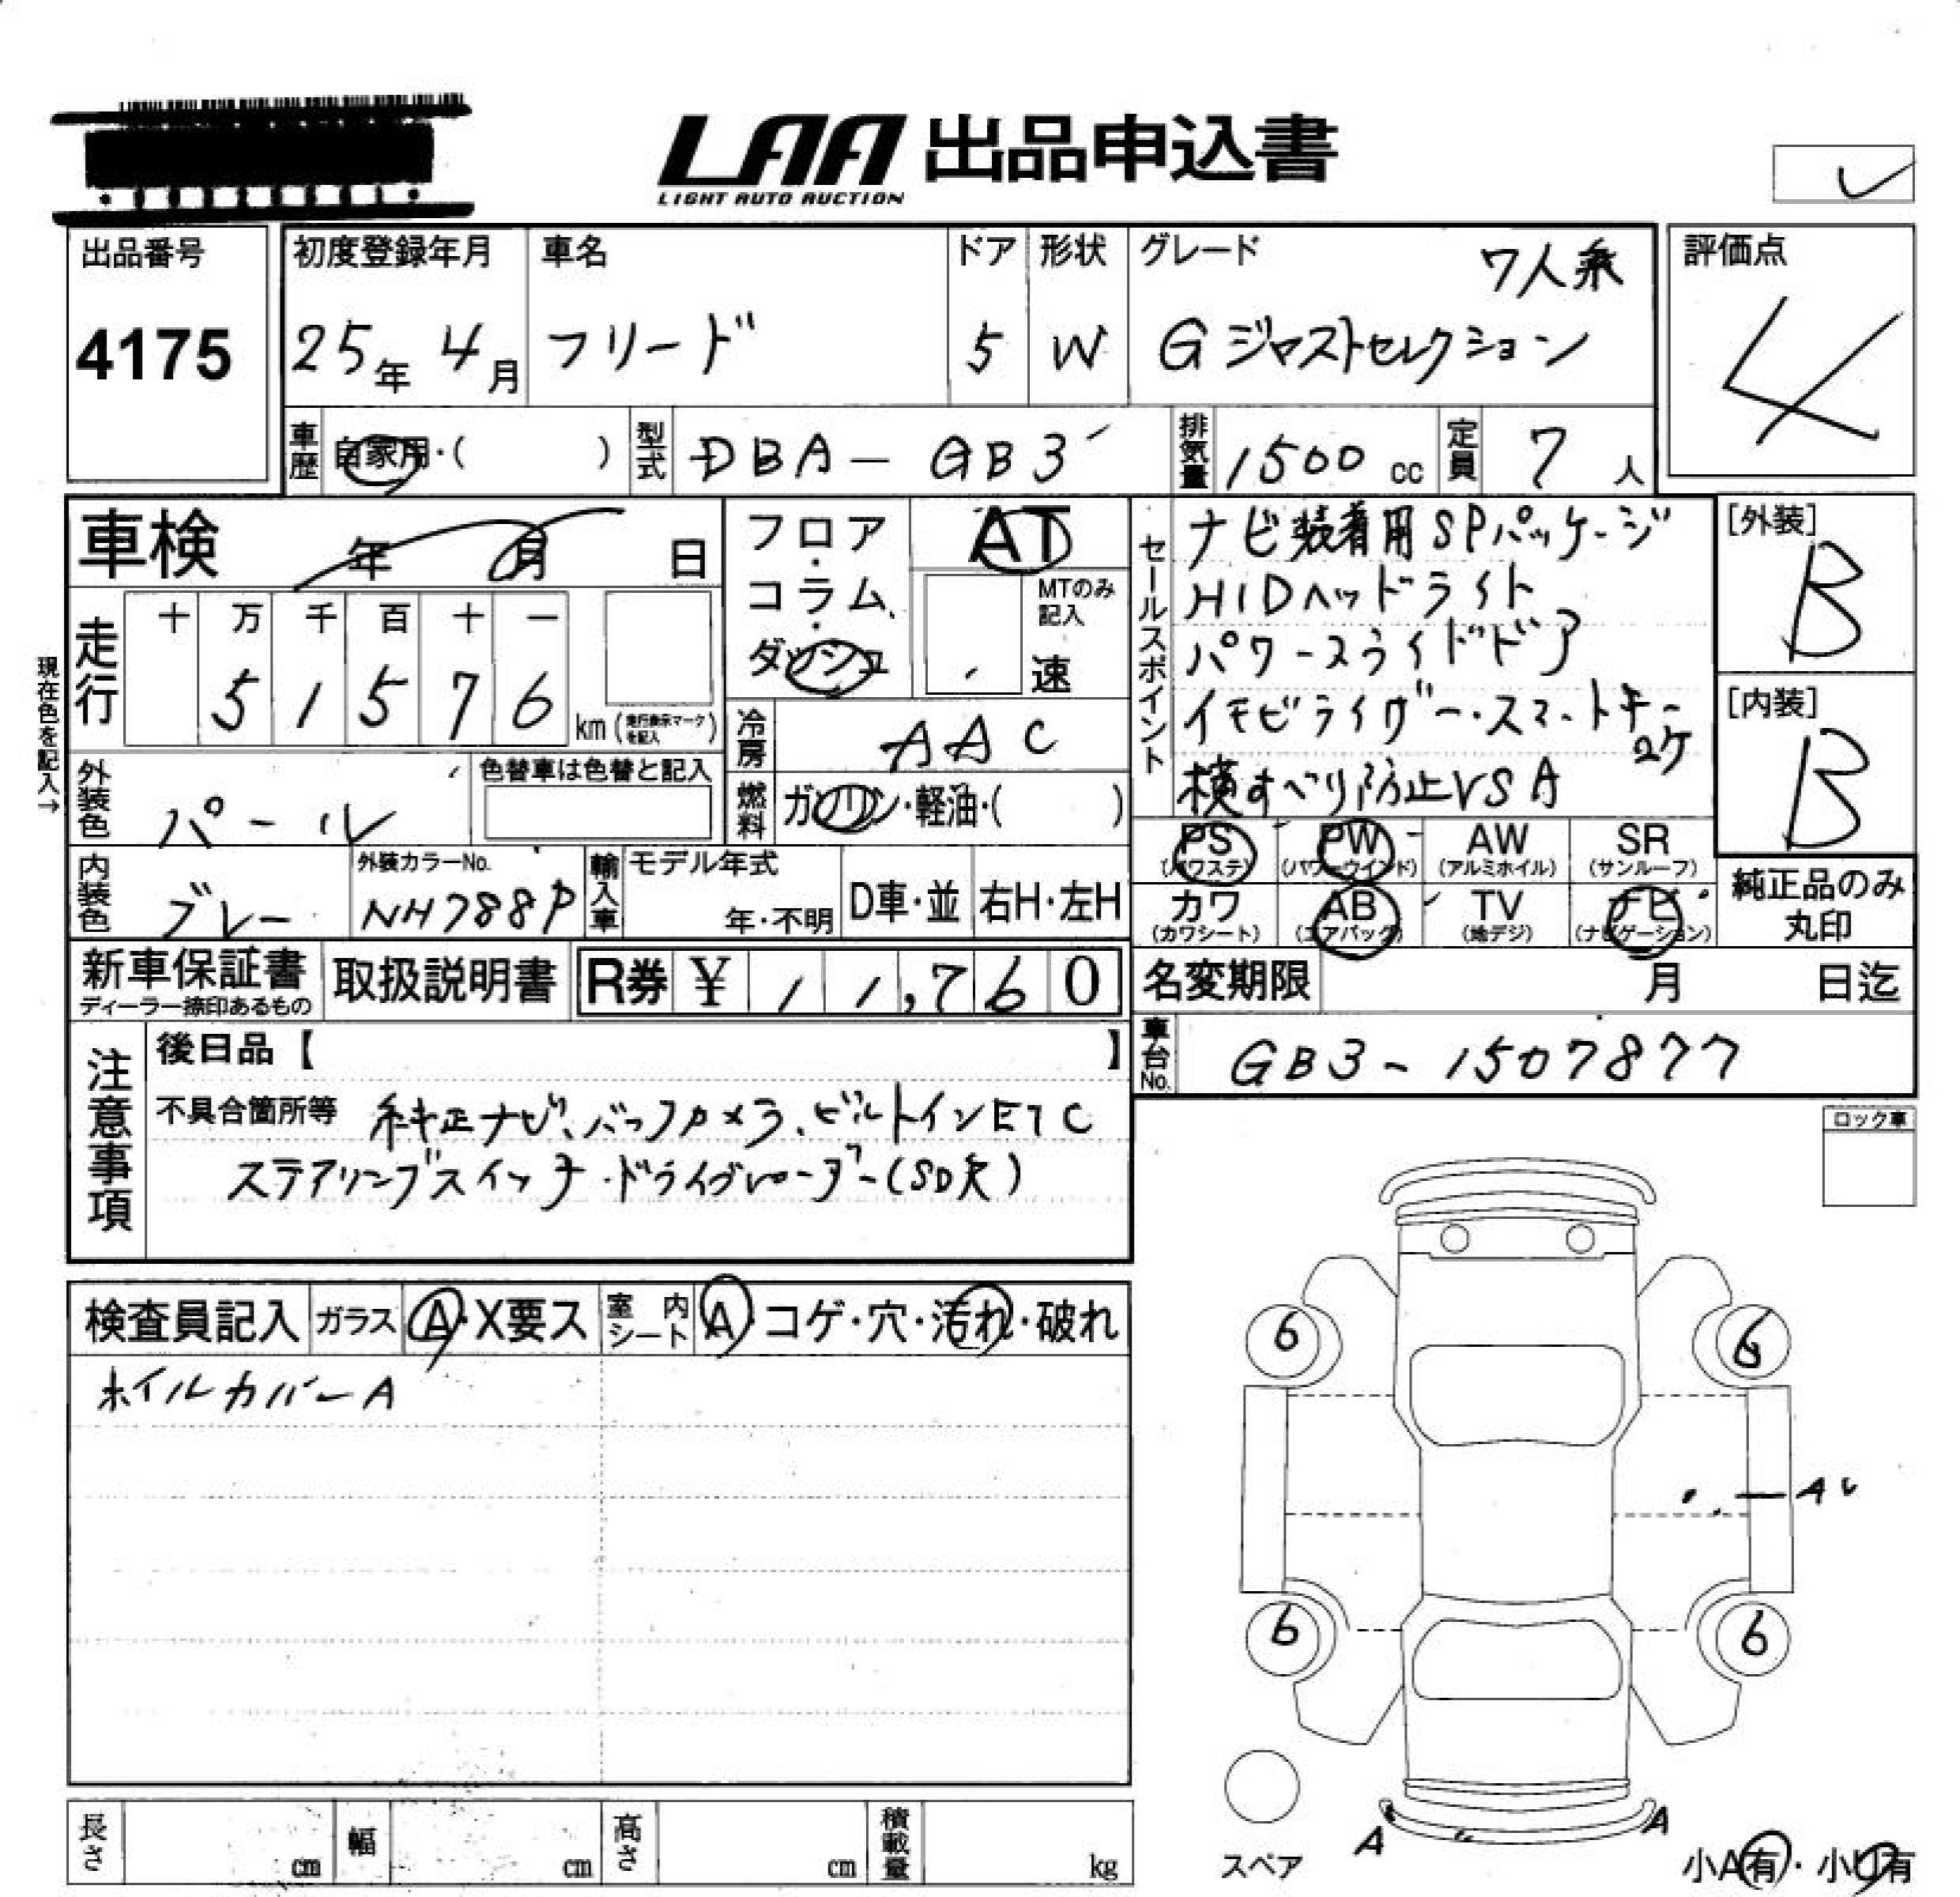 LAA 出品申込書
LIGHT AUTO AUCTION
出品番号
4175
初度登録年月
25年 4月
車名
フリード
ドア
5
形状
W
グレード
7人乗
Gジャストセレクション
評価点
4
車歴
自家用・( )
型式
DBA-GB3
排気量
1500 cc
定員
7 人
車検 年 月 日
走行
十 万 千 百 十 一
5 1 5 7 6
km (走行表示マークを記入)
現在色を記入→
フロア・コラム・ダッシュ
AT
MTのみ記入
速
冷房
AAC
燃料
ガソリン・軽油・( )
外装色
パール
色替車は色替と記入
内装色
グレー
外装カラーNo.
NH788P
輸入車
モデル年式
年・不明
D車・並
右H・左H
セールスポイント
ナビ装着用SPパッケージ
HIDヘッドライト
パワースライドドア
イモビライザー・スマートキー
2ケ
横すべり防止VSA
[外装]
B
[内装]
B
PS (パワステ)
PW (パワーウインド)
AW (アルミホイル)
SR (サンルーフ)
カワ (カワシート)
AB (エアバック)
TV (地デジ)
ナビ (ナビゲーション)
純正品のみ丸印
新車保証書
ディーラー捺印あるもの
取扱説明書
R券 ¥ 11,760
名変期限 月 日迄
車台No.
GB3-1507877
注意事項
後日品【 】
不具合箇所等 純正ナビ、バックカメラ、ビルトインETC
ステアリングスイッチ・ドライブレコーダー(SD欠)
ロック車
検査員記入
ガラス A・X要ス
室内シート A・コゲ・穴・汚れ・破れ
ホイルカバーA
6
6
6
6
A
A
スペア
小A有・小U有
長さ cm
幅 cm
高さ cm
積載量 kg